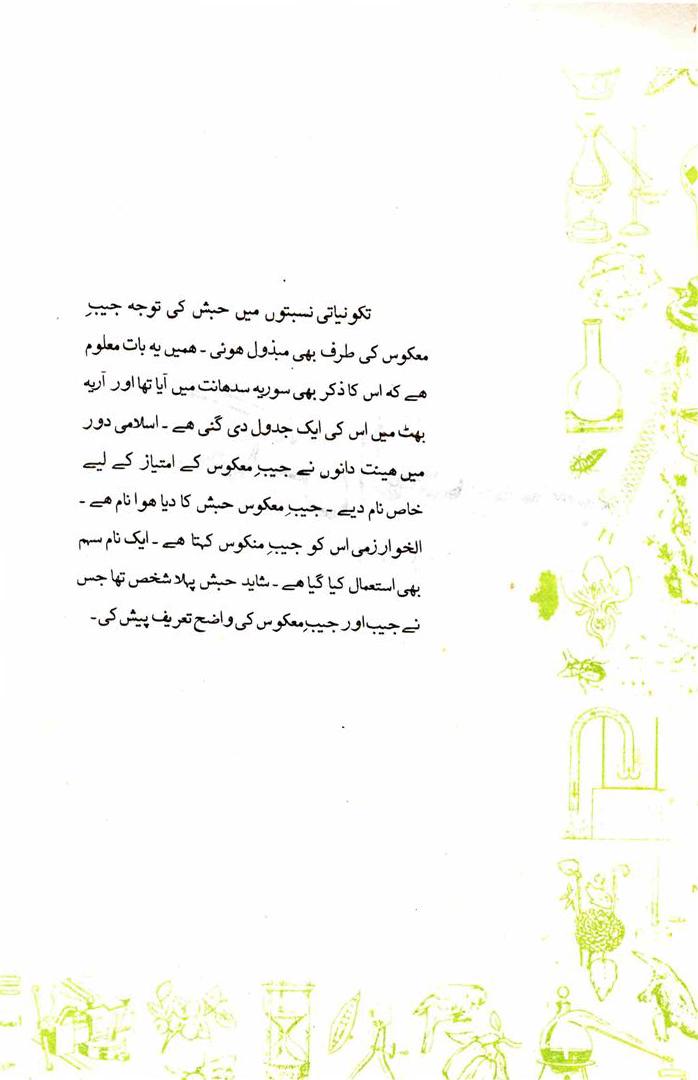 تکونیاتی نسبتوں میں حبش کی توجہ جیبِ
معکوس کی طرف بھی مبذول ہوئی ۔ ہمیں یہ بات معلوم
ہے کہ اس کا ذکر بھی سوریہ سدھانت میں آیا تھا اور آریہ
بھٹ میں اس کی ایک جدول دی گئی ہے ۔ اسلامی دور
میں ہیئت دانوں نے جیبِ معکوس کے امتیاز کے لیے
خاص نام دیے ۔ جیبِ معکوس حبش کا دیا ہوا نام ہے ۔
الخوارزمی اس کو جیبِ منکوس کہتا ہے ۔ ایک نام سہم
بھی استعمال کیا گیا ہے ۔ شاید حبش پہلا شخص تھا جس
نے جیب اور جیبِ معکوس کی واضح تعریف پیش کی ۔